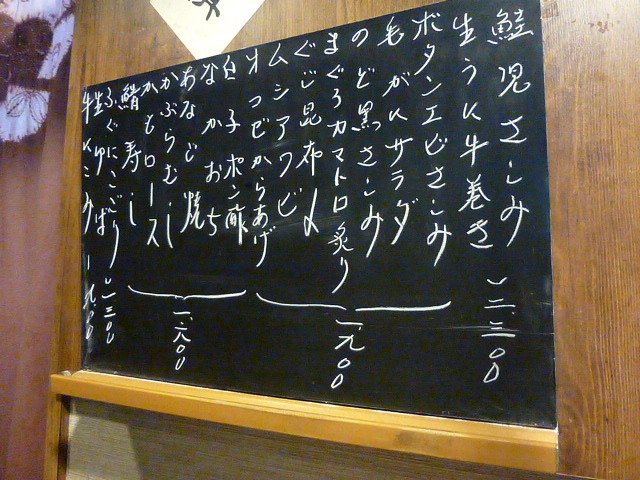 鮭児さしみ
生うに牛巻き
二、三〇〇
ボタンエビさしみ
毛がにサラダ
のど黒さしみ
まぐろカマトロ炙り
ぐじ昆布〆
ムシアワビ
オコゼからあげ
一、九〇〇
白子ポン酢
なかおち
あなご焼
かぶらむし
かもロース
鯖寿し
一、六〇〇
ふぐにこごり 一、三〇〇
生ゆば
牛にこみ 一、九〇〇